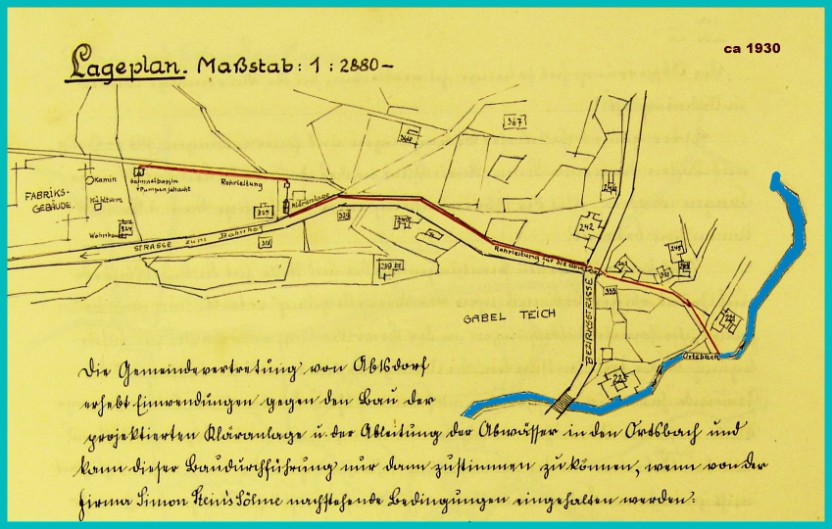 ca 1930
Lageplan. Maßstab: 1 : 2880 –
367
FABRIKS-
GEBÄUDE
Kamin
Kühlturm
Wohnhs
Sammelbassin
+ Pumpenschacht
Rohrleitung
Kläranlage
STRASSE zum Bahnhof
242
Rohrleitung für die
BEZIRKSSTRASSE
GABEL TEICH
Ortsbach
Die Gemeindevertretung von Abtsdorf
erhebt Einwendungen gegen den Bau der
projektierten Kläranlage u. der Ableitung der Abwässer in den Ortsbach und
kann dieser Baudurchführung nur dann zustimmen zu können, wenn von der
Firma Simon Stein's Söhne nachstehende Bedingungen eingehalten werden: